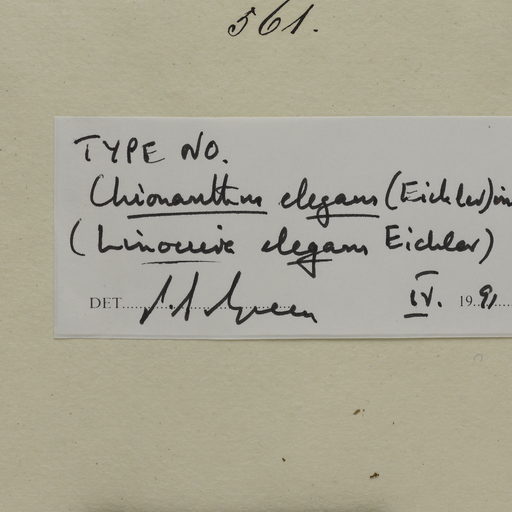 561.
TYPE NO.
Chionanthus elegans (Eichler) in
(Linociera elegans Eichler)
DET. P. S. Green IV. 1991